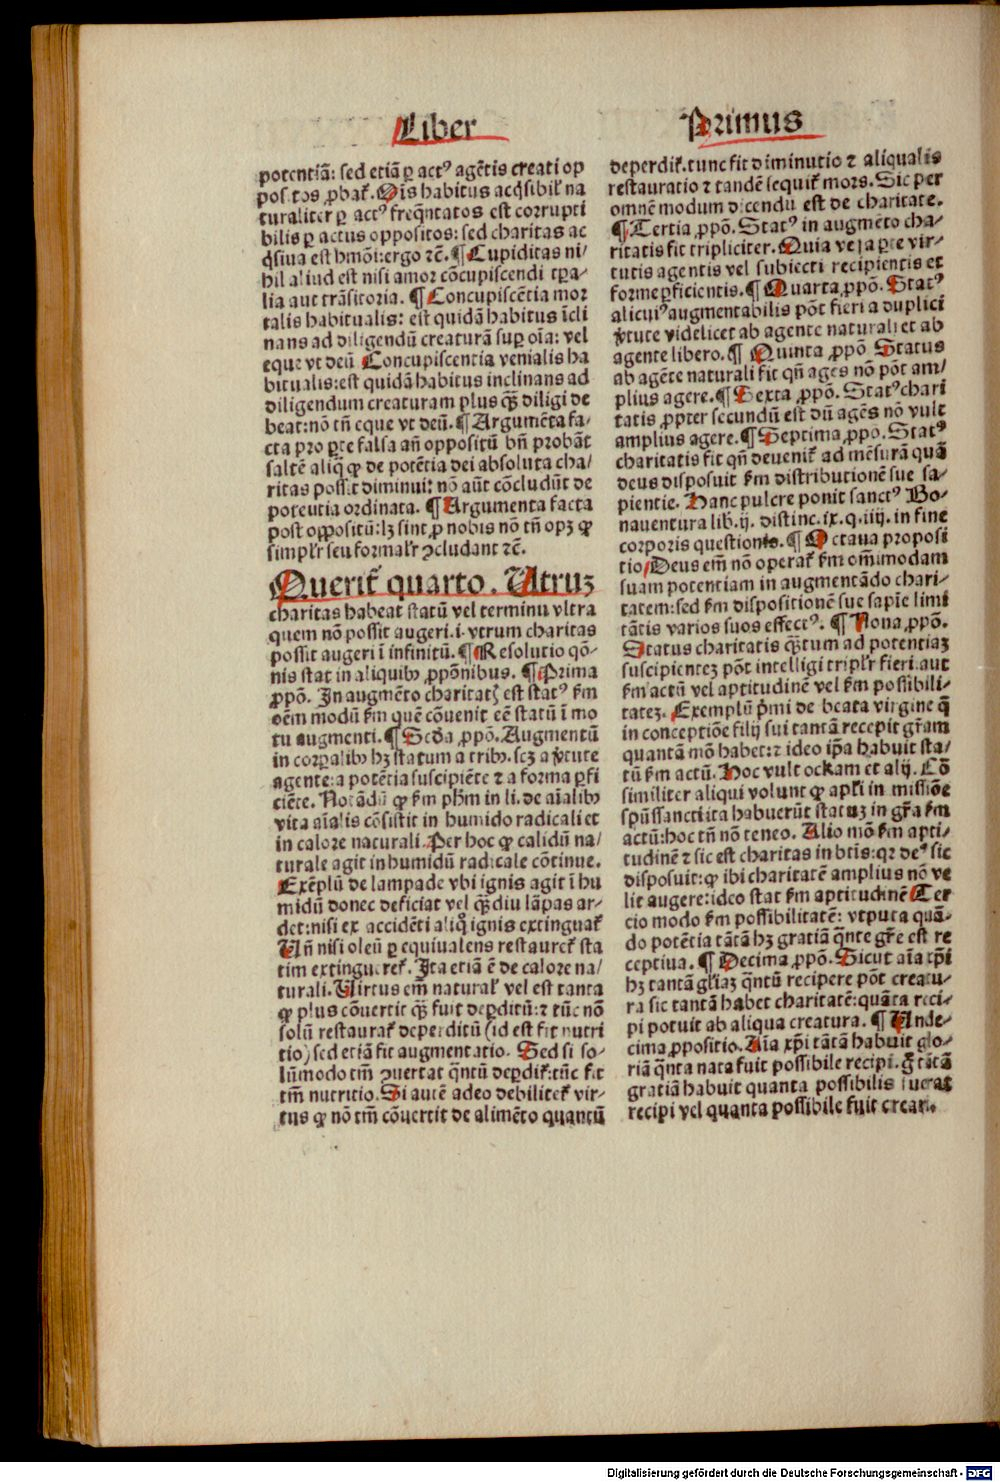 Liber
Primus
potentiā: sed etiā ꝑ actꝰ agētis creati op
positos ꝓbat̄. Ois habitus acq̇sibil̓ na
turaliter ꝑ actꝰ freq̄ntatos est corrupti
bilis ꝑ actus oppositos: sed charitas ac
q̇siua est hm̄oi: ergo ⁊c̄. ¶ Cupiditas ni/
hil aliud est nisi amor cōcupiscendi tꝑa-
lia aut trāsitoria. ¶ Concupiscētia mor
talis habitualis: est quidā habitus īcli
nans ad diligendū creaturā suꝑ oīa: vel
eque vt deū Concupiscentia venialis ha
bitualis: est quidā habitus inclinans ad
diligendum creaturam plus q̄ꝫ diligi de
beat: nō tn̄ eque vt deū. ¶ Argumēta fa/
cta pro ꝑte falsa an̄ oppositū bn̄ probāt
saltē aliq̄ ꝙ de potētia dei absoluta cha/
ritas possit diminui: nō aūt cōcludūt de
potentia ordinata. ¶ Argumenta facta
post oppositū: lꝫ sint ꝓ nobis nō tn̄ opꝫ ꝙ
simpl̓r seu formal̓r ꝯcludant ⁊c̄.
Querit̄ quarto. Utruꝫ
charitas habeat statū vel terminū vltra
quem nō possit augeri. i. vtrum charitas
possit augeri ī infinitū. ¶ Resolutio qō-
nis stat in aliquibꝰ ꝓpōnibus. ¶ Prima
ꝓpō. In augmēto charitatꝭ est statꝰ ẜm
oēm modū ẜm quē cōuenit eē statū ī mo
tu augmenti. ¶ Scd̓a ꝓpō. Augmentū
in corꝑalibꝰ hꝫ statum a tribꝰ. scꝫ a v̓tute
agente: a potētia suscipiēte ⁊ a forma ꝑfi
ciēte. Notādū ꝙ ẜm ph̄m in li. de aīalibꝰ
vita aīalis cōsistit in humido radicali et
in calore naturali. Per hoc ꝙ calidū na/
turale agit in humidū radicale cōtinue.
Exēplū de lampade vbi ignis agit ī hu
midū donec deficiat vel q̄ꝫdiu lāpas ar-
det: nisi ex accidēti aliq̊ ignis extinguat̄
Un̄ nisi oleū ꝑ equiualens restauret̄ sta
tim extingueret̄. Ita etiā ē de calore na/
turali. Uirtus em̄ natural̓ vel est tanta
ꝙ plus cōuertit q̄ꝫ fuit deꝑditū: ⁊ tūc nō
solū restaurat̄ deperditū (id est fit nutri
tio) sed etiā fit augmentatio. Sed si so-
lūmodo tm̄ ꝯuertat q̄ntū deꝑdit̄: tūc fit
tm̄ nutritio. Si autē adeo debilitet̄ vir-
tus ꝙ nō tm̄ cōuertit de alimēto quantū
deperdit̄. tunc fit diminutio ⁊ aliqualis
restauratio ⁊ tandē sequit̄ mors. Sic per
omnē modum dicendū est de charitate.
¶ Tertia ꝓpō. Statꝰ in augmēto cha-
ritatis fit tripliciter. Quia vel a ꝑte vir-
tutis agentis vel subiecti recipientis et
forme ꝑficientis. ¶ Quarta ꝓpō. Statꝰ
alicuiꝰ augmentabilis pōt fieri a duplici
v̓tute videlicet ab agente naturali et ab
agente libero. ¶ Quinta ꝓpō Status
ab agēte naturali fit qn̄ agēs nō pōt am/
plius agere. ¶ Sexta ꝓpō. Statꝰ chari
tatis ꝓpter secundū est dū agēs nō vult
amplius agere. ¶ Septima ꝓpō. Statꝰ
charitatis fit qn̄ deuenit̄ ad mēsurā quā
deus disposuit ẜm distributionē sue sa-
pientie. Hanc pulcre ponit sanctꝰ Bo-
nauentura lib. ij. distinc. ix. q. iiij. in fine
corporis questionis. ¶ Octaua proposi
tio Deus em̄ nō operat̄ ẜm om̄imodam
suam potentiam in augmentādo chari-
tatem: sed ẜm dispositionē sue sapīe limi
tātis varios suos effectꝰ. ¶ Nona ꝓpō.
Status charitatis q̄ꝫtum ad potentiaꝫ
suscipienteꝫ pōt intelligi tripl̓r fieri. aut
ẜm actū vel aptitudinē vel ẜm possibili-
tateꝫ. Exemplū p̓mi de beata virgine q̄
in conceptiōe filij sui tantā recepit gr̄am
quantā mō habet: ⁊ ideo ip̄a habuit sta/
tū ẜm actū. Hoc vult ockam et alij. Cō
similiter aliqui volunt ꝙ apl̓i in missiōe
spūssancti ita habuerūt statuꝫ in gr̄a ẜm
actū: hoc tn̄ nō teneo. Alio mō ẜm apti-
tudinē ⁊ sic est charitas in btīs: qꝛ deꝰ sic
disposuit: ꝙ ibi charitatē amplius nō ve
lit augere: ideo stat ẜm aptitudinē Ter
cio modo ẜm possibilitatē: vtputa quā-
do potētia tātā hꝫ gratiā q̄nte gr̄e est re
ceptiua. ¶ Decima ꝓpō. Sicut aīa xp̄i
hꝫ tantā gl̓iaꝫ q̄ntū recipere pōt creatu-
ra sic tantā habet charitatē: quāta reci-
pi potuit ab aliqua creatura. ¶ Unde-
cima ꝓpositio. Aīa xp̄i tātā habuit glo-
riā q̄nta nata fuit possibile recipi. g̊ tātā
gratiā habuit quanta possibilis fuerat
recipi vel quanta possibile fuit creari.
Digitalisierung gefördert durch die Deutsche Forschungsgemeinschaft - DFG